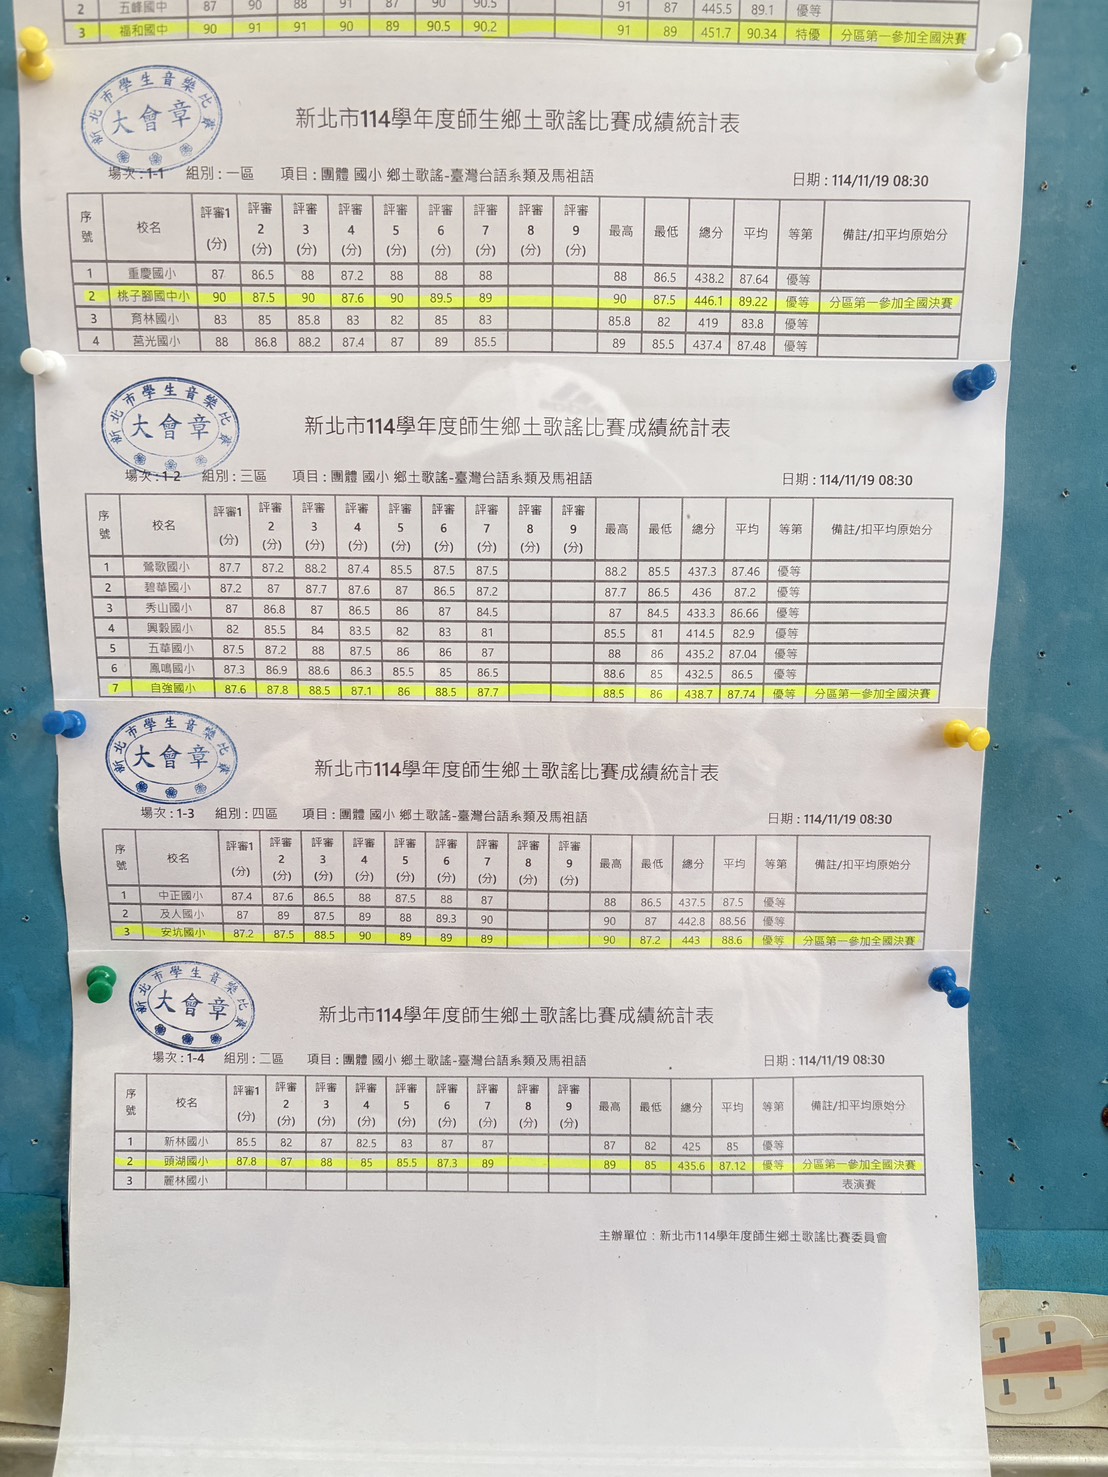 2 五峰國中 87 90 88 91 87 90 90.5 91 87 445.5 89.1 優等
3 福和國中 90 91 91 90 89 90.5 90.2 91 89 451.7 90.34 特優 分區第一參加全國決賽
新北市學生音樂比賽
大會章
新北市114學年度師生鄉土歌謠比賽成績統計表
場次:1-1 組別:一區 項目:團體 國小 鄉土歌謠-臺灣台語系類及馬祖語 日期:114/11/19 08:30
序號 校名 評審1(分) 評審2(分) 評審3(分) 評審4(分) 評審5(分) 評審6(分) 評審7(分) 評審8(分) 評審9(分) 最高 最低 總分 平均 等第 備註/扣平均原始分
1 重慶國小 87 86.5 88 87.2 88 88 88 88 86.5 438.2 87.64 優等
2 桃子腳國中小 90 87.5 90 87.6 90 89.5 89 90 87.5 446.1 89.22 優等 分區第一參加全國決賽
3 育林國小 83 85 85.8 83 82 85 83 85.8 82 419 83.8 優等
4 莒光國小 88 86.8 88.2 87.4 87 89 85.5 89 85.5 437.4 87.48 優等
新北市學生音樂比賽
大會章
新北市114學年度師生鄉土歌謠比賽成績統計表
場次:1-2 組別:三區 項目:團體 國小 鄉土歌謠-臺灣台語系類及馬祖語 日期:114/11/19 08:30
序號 校名 評審1(分) 評審2(分) 評審3(分) 評審4(分) 評審5(分) 評審6(分) 評審7(分) 評審8(分) 評審9(分) 最高 最低 總分 平均 等第 備註/扣平均原始分
1 鶯歌國小 87.7 87.2 88.2 87.4 85.5 87.5 87.5 88.2 85.5 437.3 87.46 優等
2 碧華國小 87.2 87 87.7 87.6 87 86.5 87.2 87.7 86.5 436 87.2 優等
3 秀山國小 87 86.8 87 86.5 86 87 84.5 87 84.5 433.3 86.66 優等
4 興穀國小 82 85.5 84 83.5 82 83 81 85.5 81 414.5 82.9 優等
5 五華國小 87.5 87.2 88 87.5 86 86 87 88 86 435.2 87.04 優等
6 鳳鳴國小 87.3 86.9 88.6 86.3 85.5 85 86.5 88.6 85 432.5 86.5 優等
7 自強國小 87.6 87.8 88.5 87.1 86 88.5 87.7 88.5 86 438.7 87.74 優等 分區第一參加全國決賽
新北市學生音樂比賽
大會章
新北市114學年度師生鄉土歌謠比賽成績統計表
場次:1-3 組別:四區 項目:團體 國小 鄉土歌謠-臺灣台語系類及馬祖語 日期:114/11/19 08:30
序號 校名 評審1(分) 評審2(分) 評審3(分) 評審4(分) 評審5(分) 評審6(分) 評審7(分) 評審8(分) 評審9(分) 最高 最低 總分 平均 等第 備註/扣平均原始分
1 中正國小 87.4 87.6 86.5 88 87.5 88 87 88 86.5 437.5 87.5 優等
2 及人國小 87 89 87.5 89 88 89.3 90 90 87 442.8 88.56 優等
3 安坑國小 87.2 87.5 88.5 90 89 89 89 90 87.2 443 88.6 優等 分區第一參加全國決賽
新北市學生音樂比賽
大會章
新北市114學年度師生鄉土歌謠比賽成績統計表
場次:1-4 組別:二區 項目:團體 國小 鄉土歌謠-臺灣台語系類及馬祖語 日期:114/11/19 08:30
序號 校名 評審1(分) 評審2(分) 評審3(分) 評審4(分) 評審5(分) 評審6(分) 評審7(分) 評審8(分) 評審9(分) 最高 最低 總分 平均 等第 備註/扣平均原始分
1 新林國小 85.5 82 87 82.5 83 87 87 87 82 425 85 優等
2 頭湖國小 87.8 87 88 85 85.5 87.3 89 89 85 435.6 87.12 優等 分區第一參加全國決賽
3 麗林國小 表演賽
主辦單位:新北市114學年度師生鄉土歌謠比賽委員會